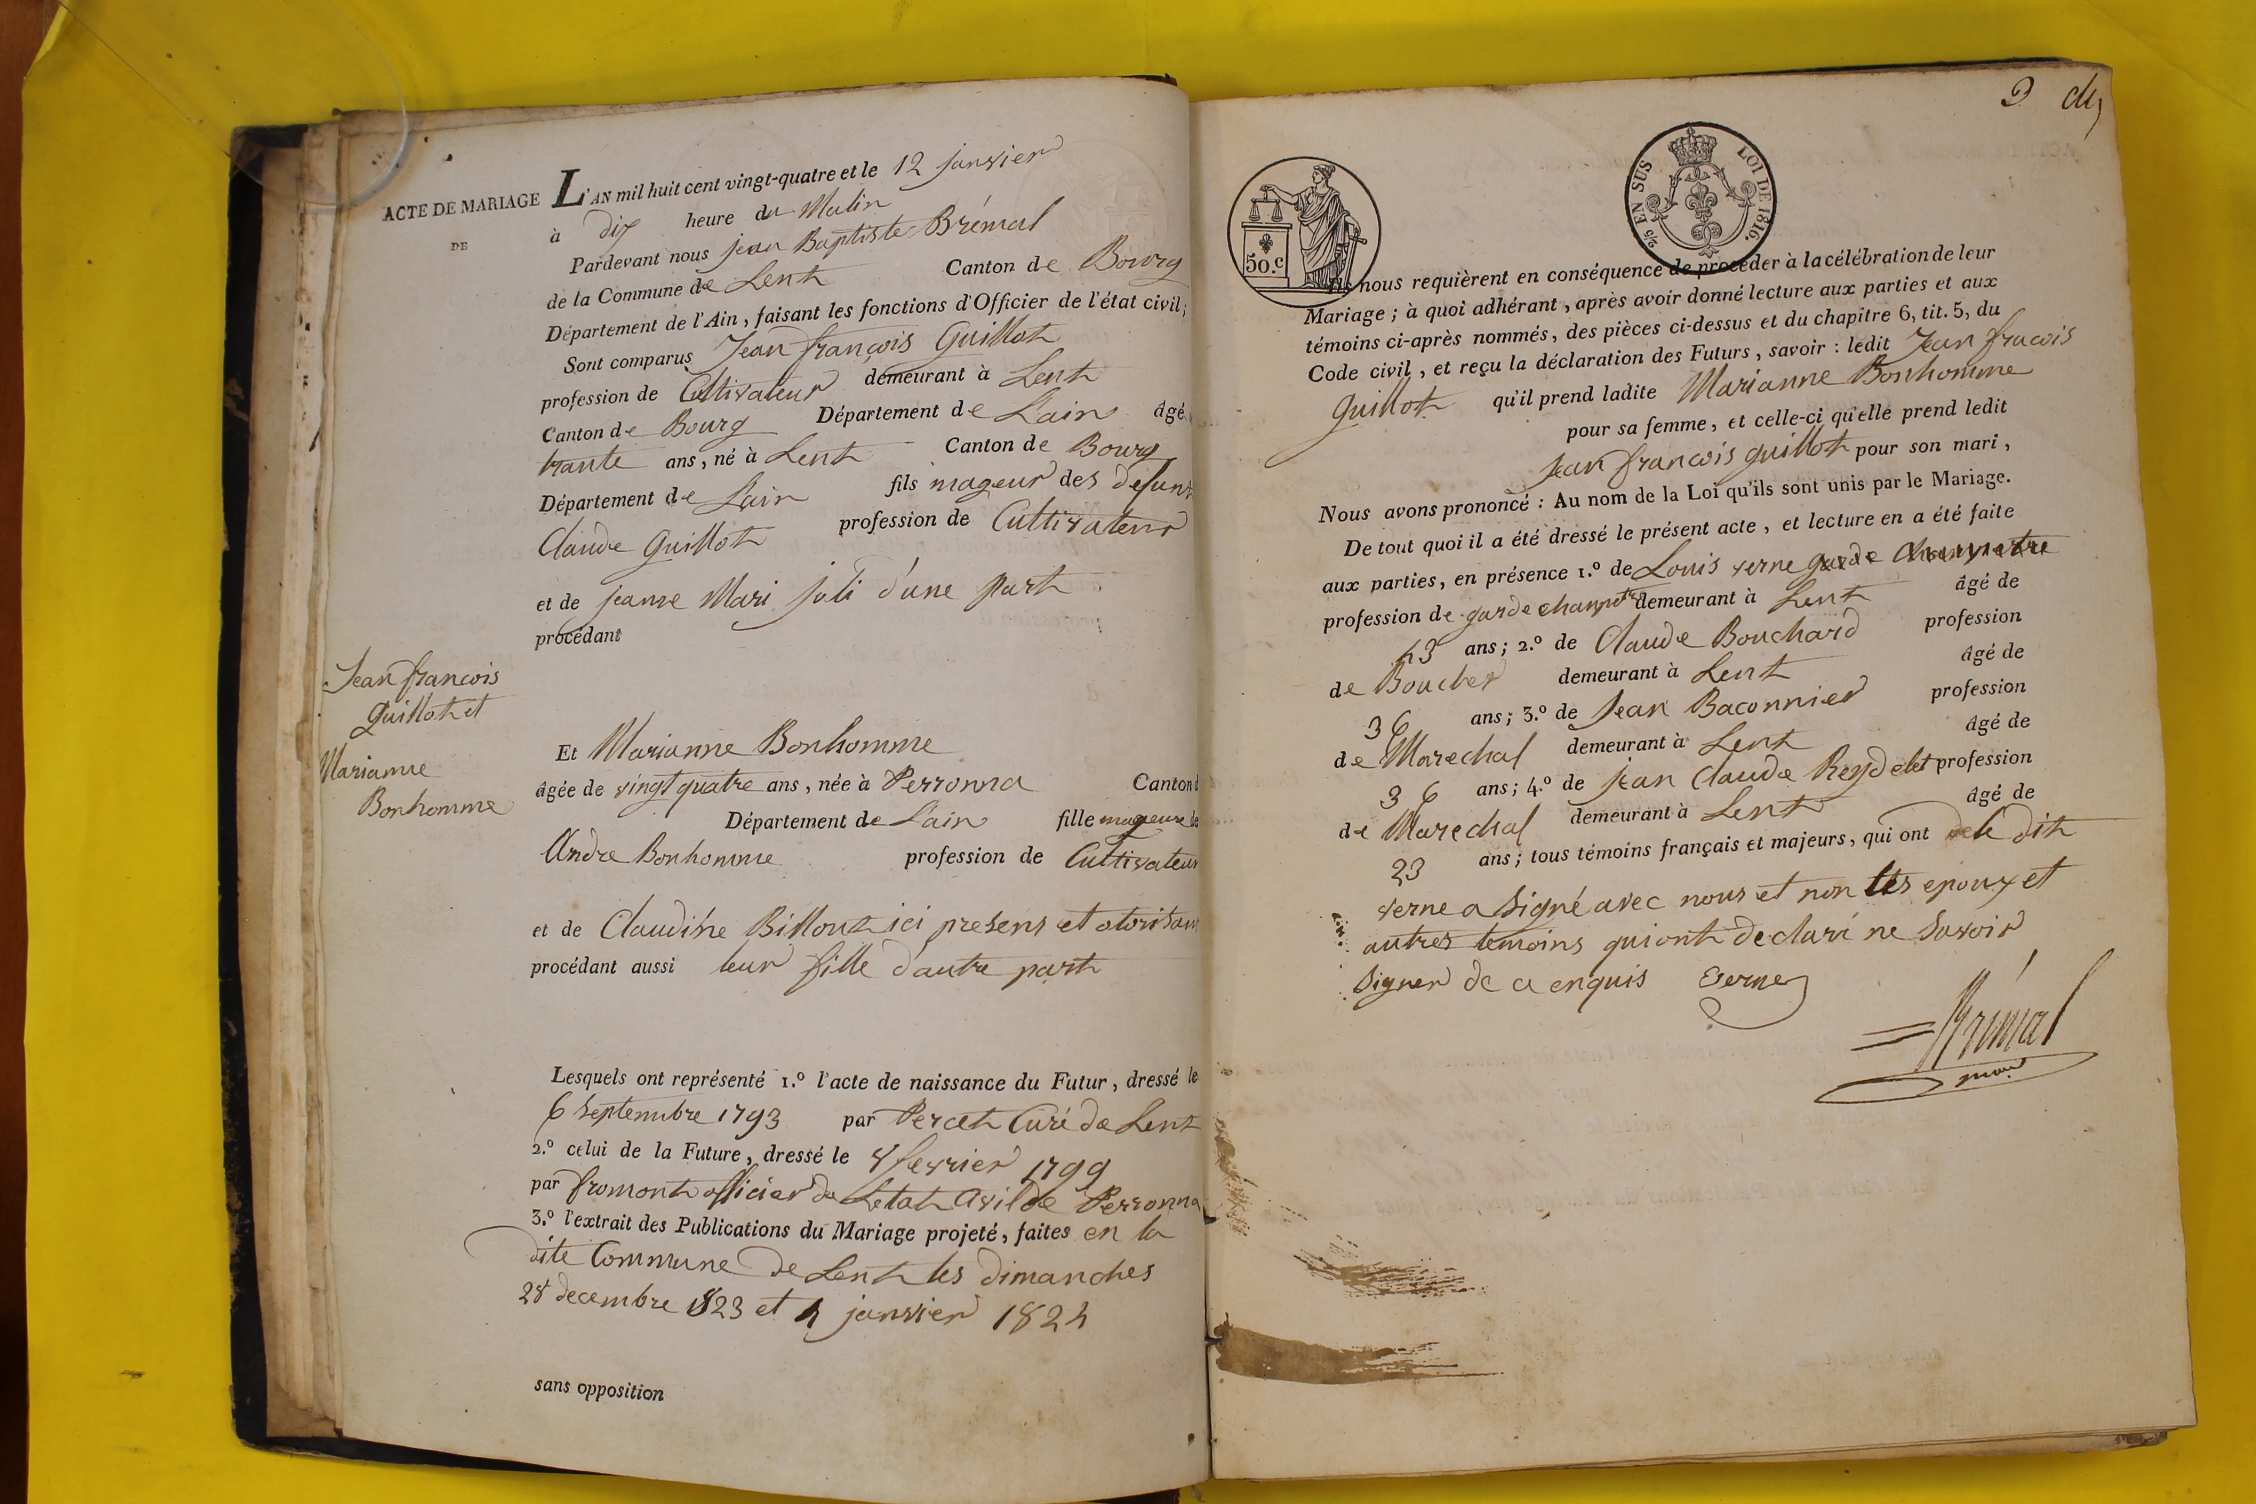 ACTE DE MARIAGE
DE
Jean françois
Guillot et
Marianne
Bonhomme
L'AN mil huit cent vingt-quatre et le 12 janvier
à dix heure du Matin
Pardevant nous jean Baptiste Brémal
de la Commune de Lent Canton de Bourg
Département de l'Ain, faisant les fonctions d'Officier de l'état civil;
Sont comparus Jean françois Guillot
profession de Cultivateur demeurant à Lent
Canton de Bourg Département de Lain âgé
trante ans, né à Lent Canton de Bourg
Département de Lain fils mageur des defunt
Claude Guillot profession de Cultivateur
et de jeanne Mari joli d'une part
procédant
Et Marianne Bonhomme
âgée de vingt quatre ans, née à Perronna Canton
Département de Lain fille mageure de
Andre Bonhomme profession de Cultivateur
et de Claudine Billout ici presens et otorisant
procédant aussi leur fille d'autre part
Lesquels ont représenté 1.º l'acte de naissance du Futur, dressé le
6 Septembre 1793 par Percet Curé de Lent
2.º celui de la Future, dressé le 8 fevrier 1799
par fromont officier de Letat Civil de Perronna
3.º l'extrait des Publications du Mariage projeté, faites en la
dite Commune de Lent les dimanches
28 decembre 1823 et 4 janvier 1824
sans opposition
2 
50.c
2/5 EN SUS LOI DE 1816.
Ils nous requièrent en conséquence de procéder à la célébration de leur
Mariage; à quoi adhérant, après avoir donné lecture aux parties et aux
témoins ci-après nommés, des pièces ci-dessus et du chapitre 6, tit. 5, du
Code civil, et reçu la déclaration des Futurs, savoir: ledit Jean fracois
Guillot qu'il prend ladite Marianne Bonhomme
pour sa femme, et celle-ci qu'elle prend ledit
Jean francois guillot pour son mari,
Nous avons prononcé: Au nom de la Loi qu'ils sont unis par le Mariage.
De tout quoi il a été dressé le présent acte, et lecture en a été faite
aux parties, en présence 1.º de Louis verne garde champetre
profession de garde champetre demeurant à Lent âgé de
43 ans; 2.º de Claude Bouchard profession
de Boucher demeurant à Lent âgé de
36 ans; 3.º de Jean Baconnier profession
de Marechal demeurant à Lent âgé de
36 ans; 4.º de jean Claude Reydelet profession
de Marechal demeurant à Lent âgé de
23 ans; tous témoins français et majeurs, qui ont le dit
verne a Signé avec nous et non les epoux et
autres temoins qui ont declaré ne Savoir
Signer de ce enquis Verne
Brémal